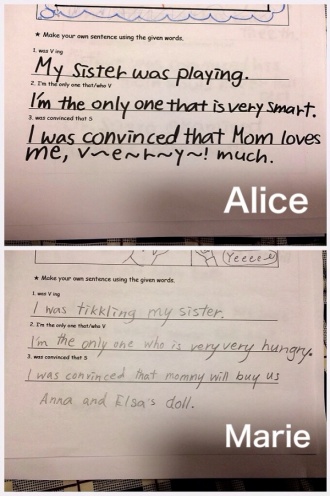 ★ Make your own sentence using the given words.
1. was V ing
My sister was playing.
2. I'm the only one that/who V
I'm the only one that is very smart.
3. was convinced that S
I was convinced that Mom loves
me, v~e~r~y~! much.
Alice
Yeeeee
★ Make your own sentence using the given words.
1. was V ing
I was tikkling my sister.
2. I'm the only one that/who V
I'm the only one who is very very hungry.
3. was convinced that S
I was convinced that mommy will buy us
Anna and Elsa's doll.
Marie